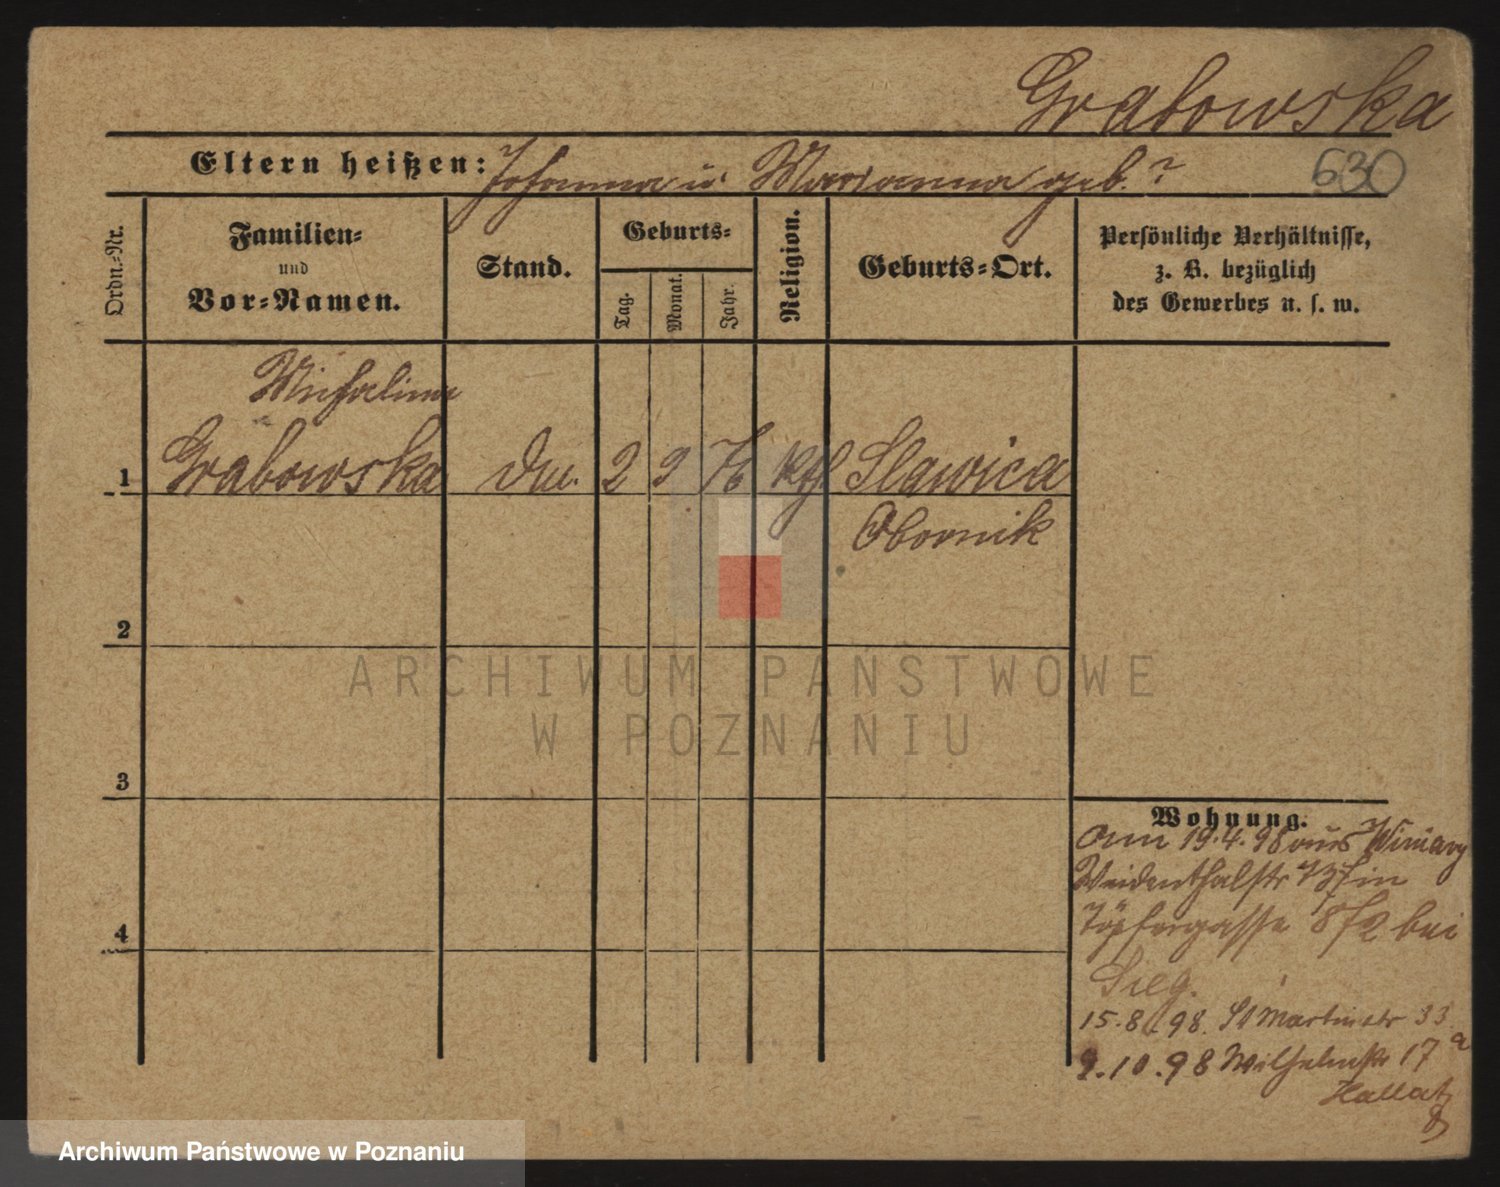 Grabowska
Eltern heißen: Johann u. Marianna geb. ?
630
Ordn.-Nr.
Familien-
und
Vor-Namen.
Stand.
Geburts-
Tag.
Monat.
Jahr.
Religion.
Geburts-Ort.
Persönliche Verhältnisse,
z. B. bezüglich
des Gewerbes u. s. w.
Michalina
1 Grabowska 2 9 76 kth Slawica
Obornik
2
ARCHIWUM PAŃSTWOWE
W POZNANIU
3
Wohnung.
19.4.98 aus Winiary
Weidenthalstr 137 in
Töpfergasse 8/2 bei
Sieg.
4
15.8.98. St Martinstr 33
9.10.98 Wilhelmstr 17 a
Archiwum Państwowe w Poznaniu